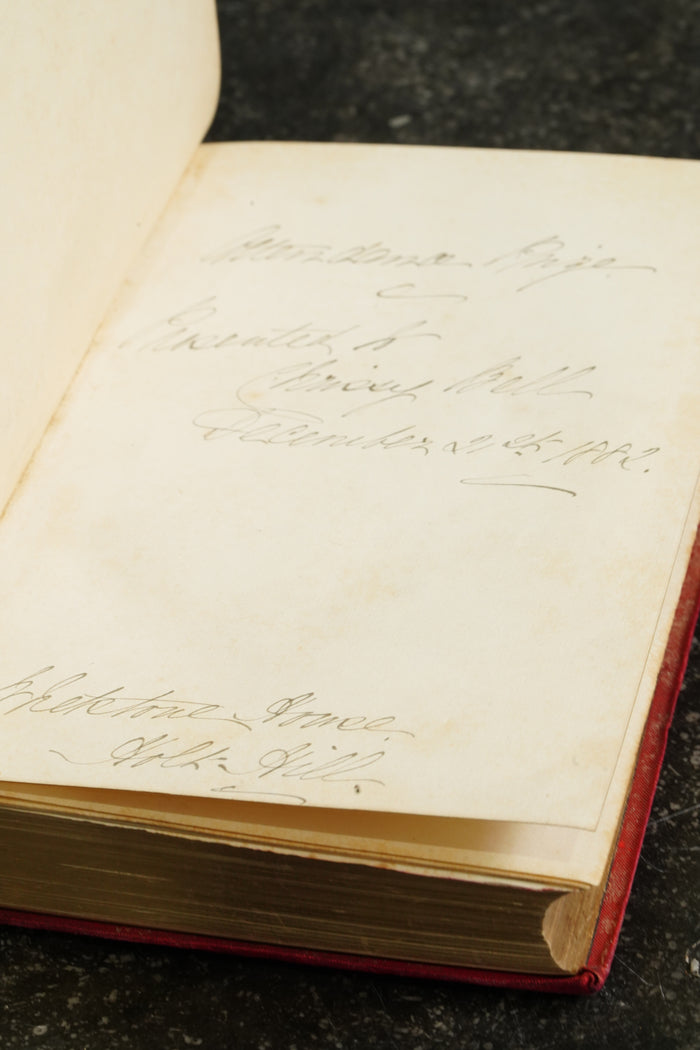 Attendance Prize
Presented to
Chrissy Bell
December 21st 1882.
Whetstone House
Holt Hill.